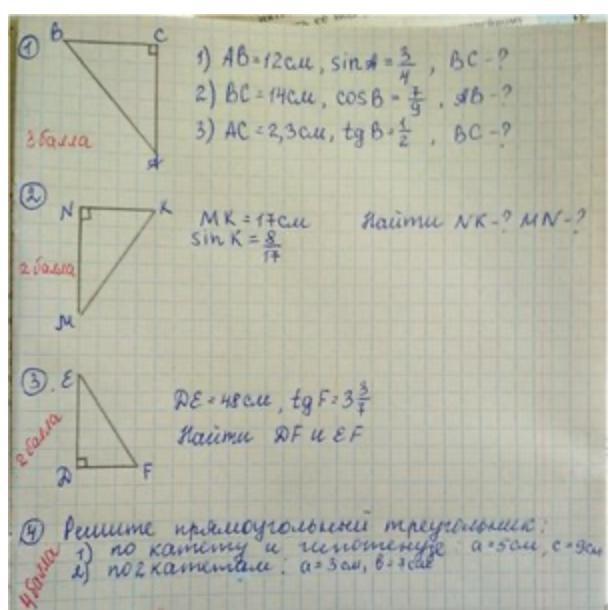 1
B C
A
3 балла
1) AB=12см, sinA=3/4, BC-?
2) BC=14см, cosB=7/9, AB-?
3) AC=2,3см, tgB=1/2, BC-?
2
N K
M
2 балла
MK=17см Найти NK-? MN-?
sinK=8/17
3
E
D F
2 балла
DE=48см, tgF=3 3/7
Найти DF и EF
4 Решите прямоугольный треугольник:
1) по катету и гипотенузе: a=5см, c=9см
2) по 2 катетам: a=3см, b=7см
4 балла